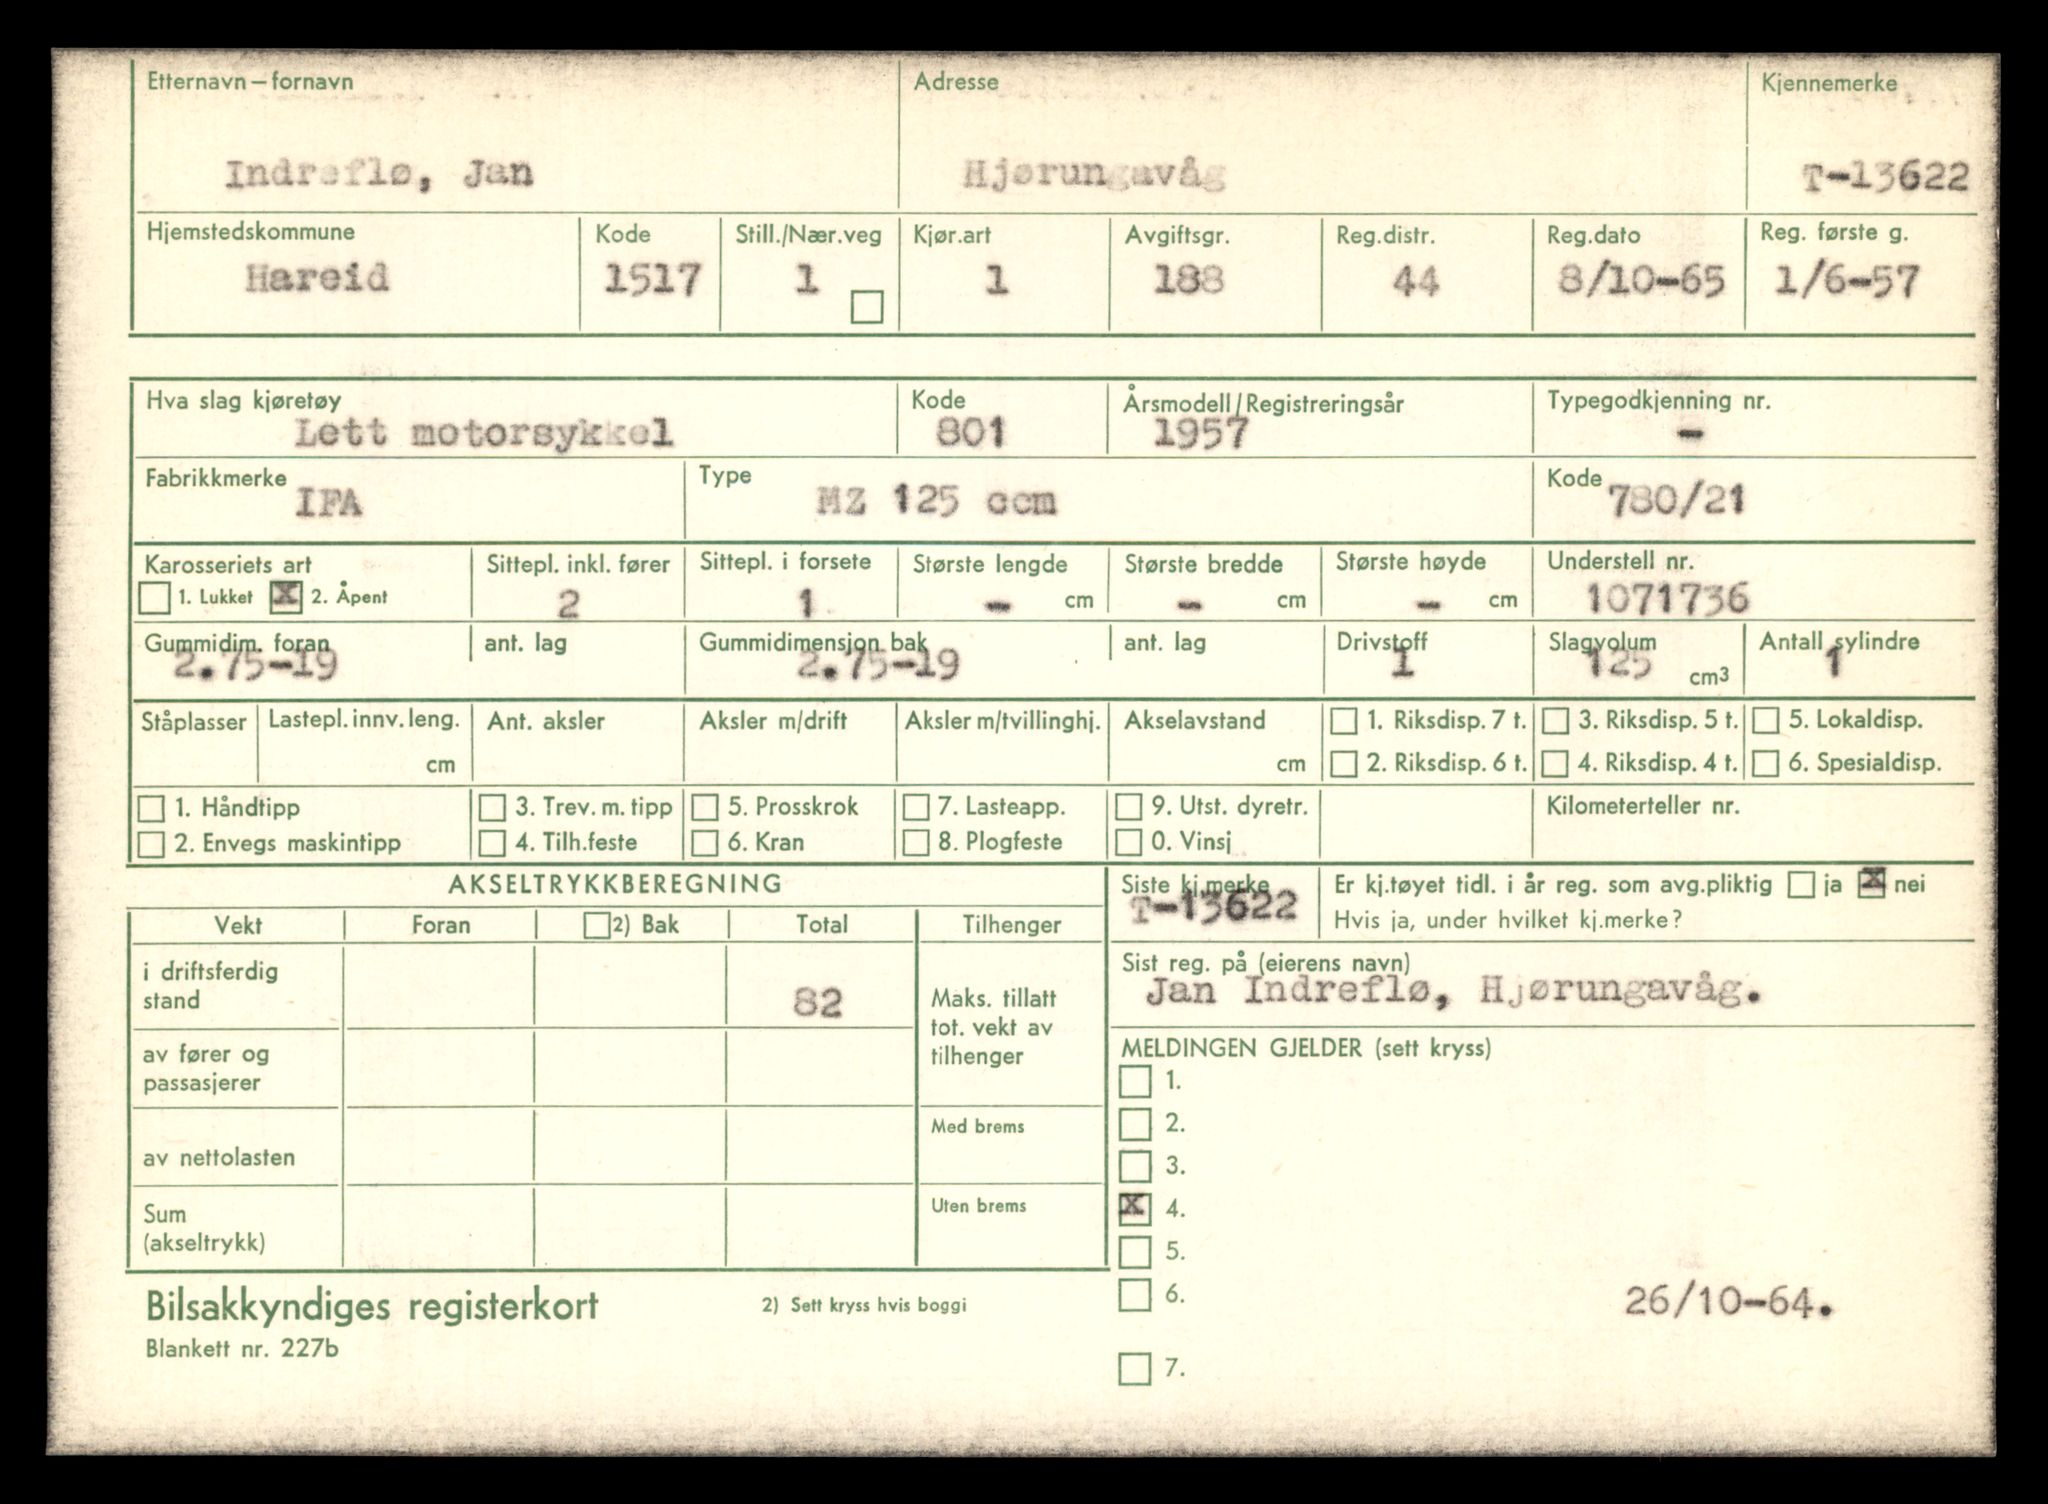 Etternavn – fornavn Adresse Kjennemerke
Indreflø, Jan Hjørungavåg T-13622
Hjemstedskommune Kode Still./Nær.veg Kjør.art Avgiftsgr. Reg.distr. Reg.dato Reg. første g.
Hareid 1517 1 1 188 44 8/10-65 1/6-57
Hva slag kjøretøy Kode Årsmodell/Registreringsår Typegodkjenning nr.
Lett motorsykkel 801 1957 -
Fabrikkmerke Type Kode
IFA MZ 125 ccm 780/21
Karosseriets art Sittepl. inkl. fører Sittepl. i forsete Største lengde Største bredde Største høyde Understell nr.
1. Lukket X 2. Åpent 2 1 - cm - cm - cm 1071736
Gummidim. foran ant. lag Gummidimensjon bak ant. lag Drivstoff Slagvolum Antall sylindre
2.75-19 2.75-19 1 125 cm3 1
Ståplasser Lastepl. innv. leng. Ant. aksler Aksler m/drift Aksler m/tvillinghj. Akselavstand 1. Riksdisp. 7 t. 3. Riksdisp. 5 t. 5. Lokaldisp.
cm cm 2. Riksdisp. 6 t. 4. Riksdisp. 4 t. 6. Spesialdisp.
1. Håndtipp 3. Trev. m. tipp 5. Prosskrok 7. Lasteapp. 9. Utst. dyretr. Kilometerteller nr.
2. Envegs maskintipp 4. Tilh.feste 6. Kran 8. Plogfeste 0. Vinsj
AKSELTRYKKBEREGNING Siste kj.merke Er kj.tøyet tidl. i år reg. som avg.pliktig ja X nei
T-13622 Hvis ja, under hvilket kj.merke?
Vekt Foran 2) Bak Total Tilhenger
i driftsferdig Sist reg. på (eierens navn)
stand 82 Jan Indreflø, Hjørungavåg.
Maks. tillatt
tot. vekt av
tilhenger
av fører og MELDINGEN GJELDER (sett kryss)
passasjerer 1.
Med brems 2.
av nettolasten 3.
Sum Uten brems X 4.
(akseltrykk) 5.
6. 26/10-64.
Bilsakkyndiges registerkort 2) Sett kryss hvis boggi
Blankett nr. 227b
7.